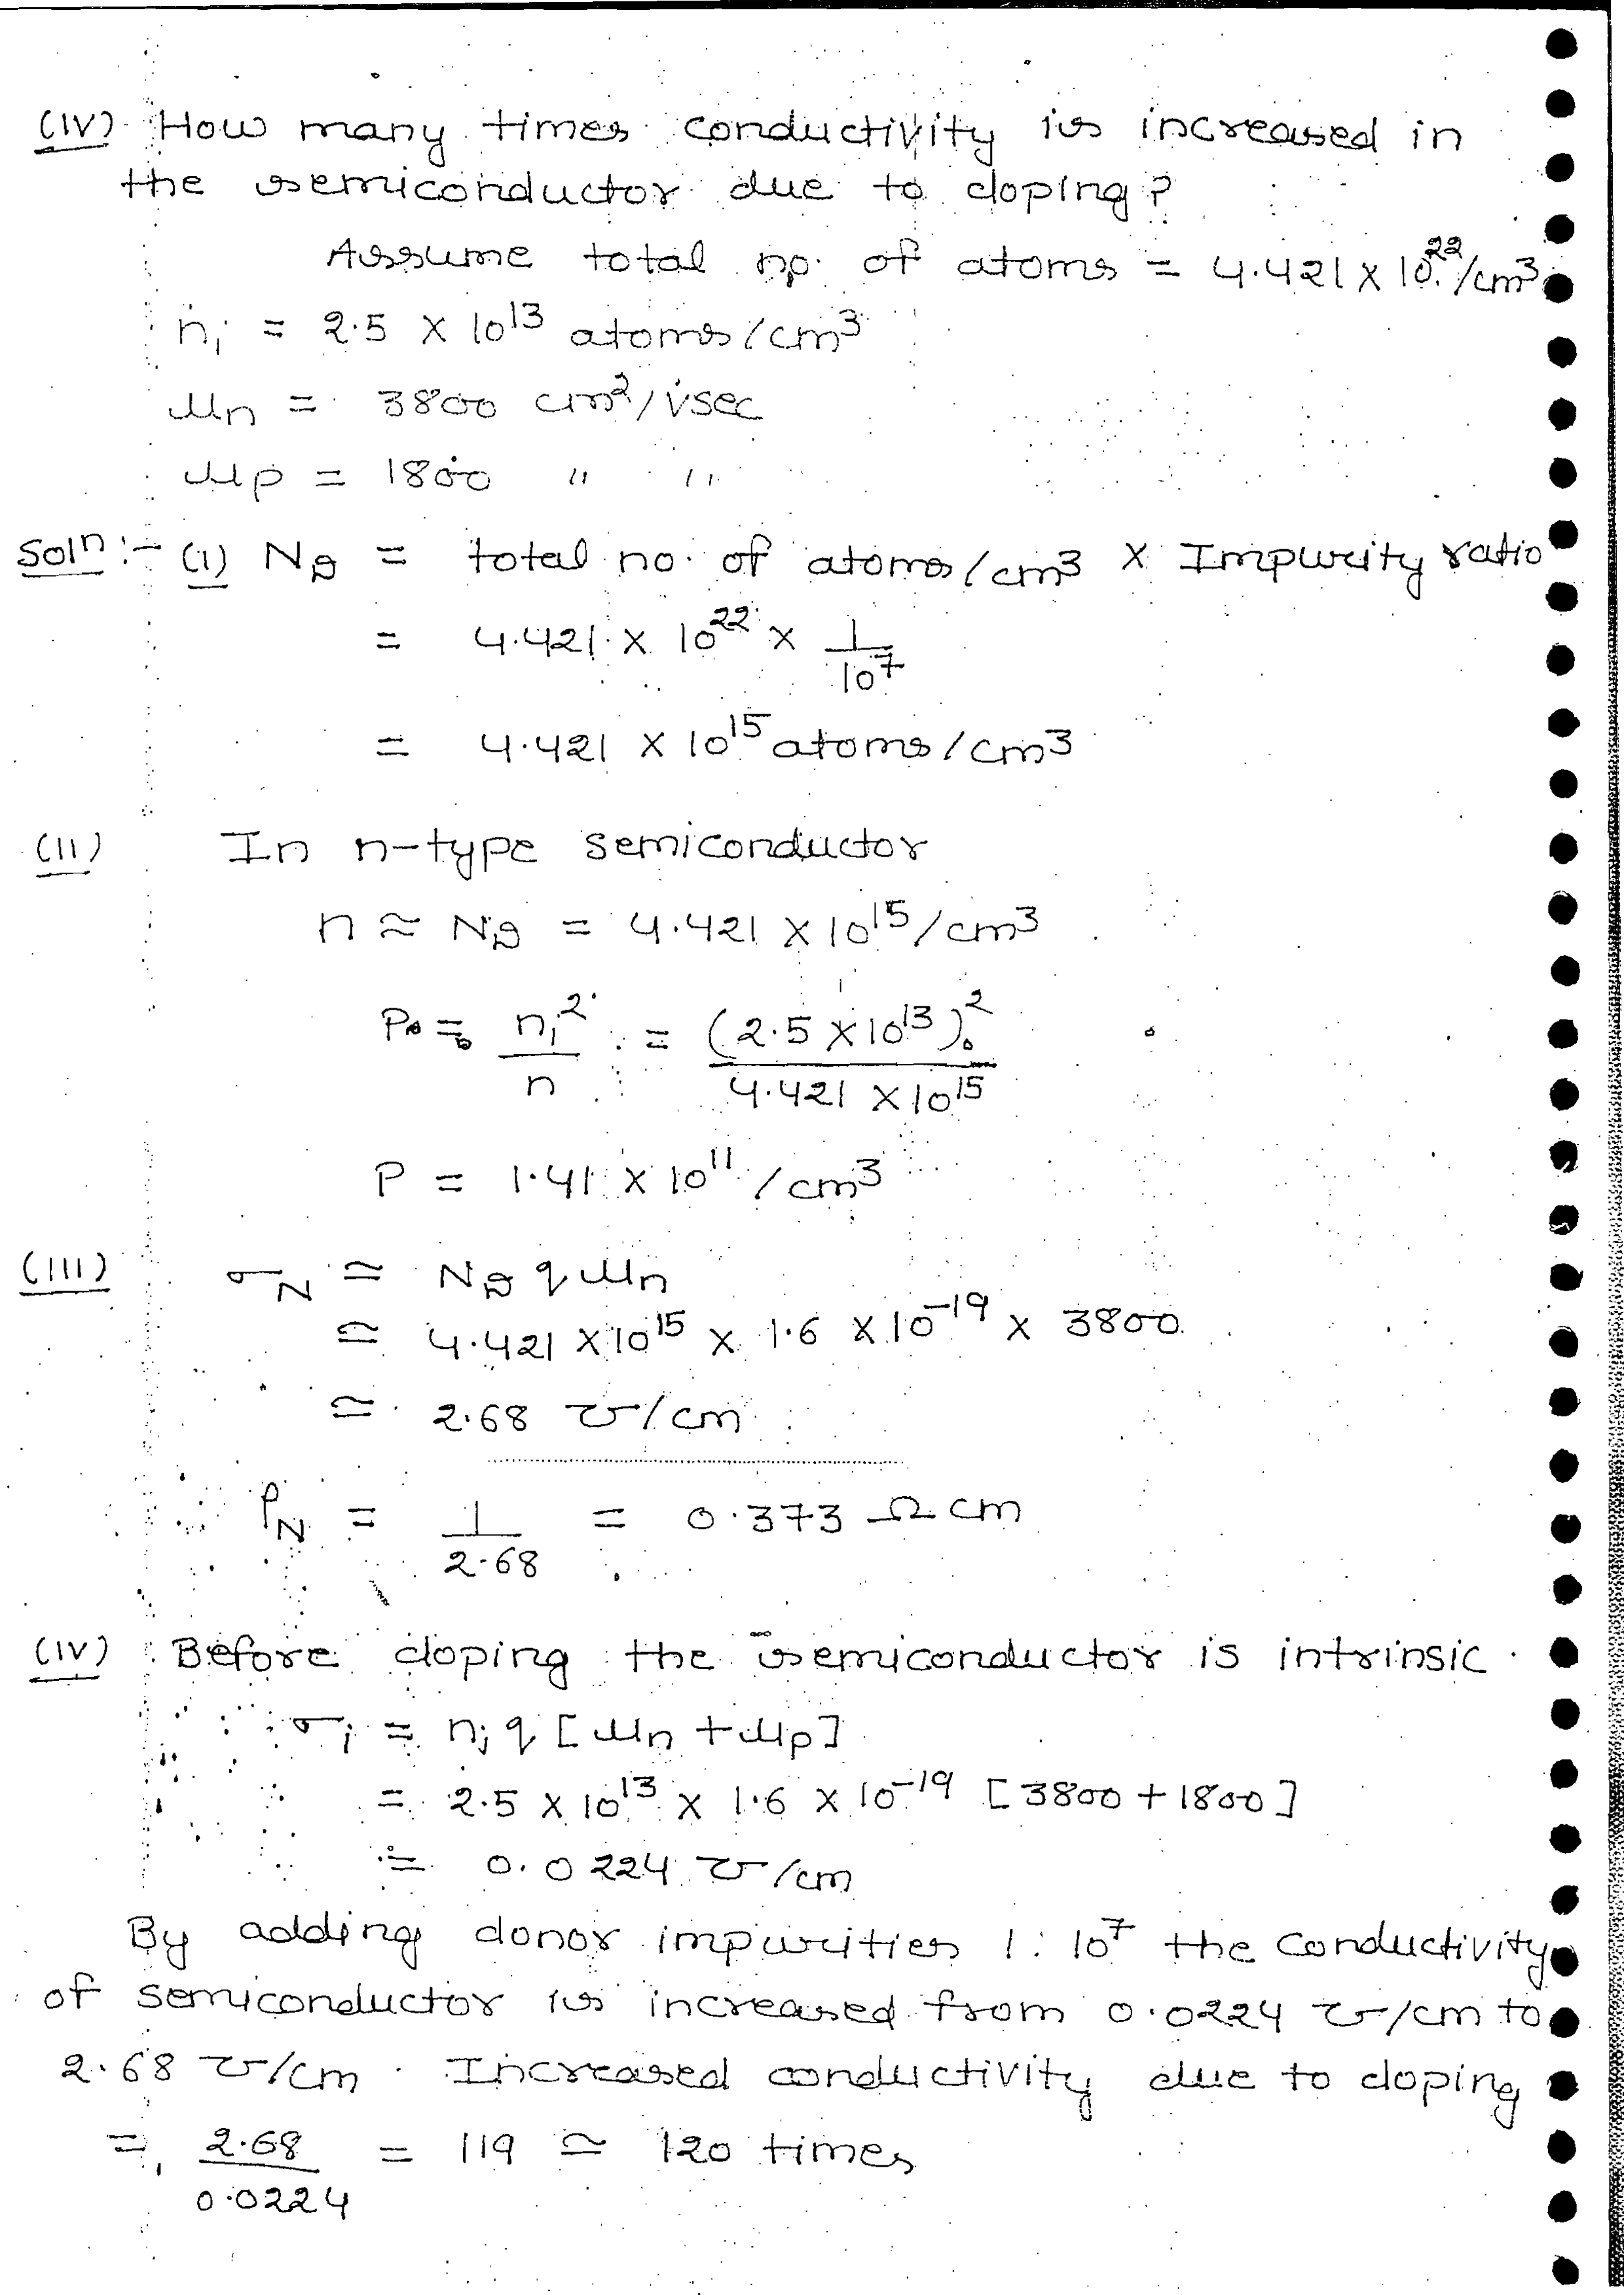 (IV) How many times conductivity is increased in
the semiconductor due to doping?
Assume total no. of atoms = 4.421 x 10²²/cm³
nᵢ = 2.5 x 10¹³ atoms/cm³
μn = 3800 cm²/vsec
μp = 1800 " "
Solⁿ:- (I) N_D = total no. of atoms/cm³ x Impurity ratio
= 4.421 x 10²² x 1/10⁷
= 4.421 x 10¹⁵ atoms/cm³
(II) In n-type semiconductor
n ≃ N_D = 4.421 x 10¹⁵/cm³
P = nᵢ²/n = (2.5 x 10¹³)²/4.421 x 10¹⁵
P = 1.41 x 10¹¹/cm³
(III) σ_N ≃ N_D q μn
≃ 4.421 x 10¹⁵ x 1.6 x 10⁻¹⁹ x 3800
≃ 2.68 ℧/cm
ρ_N = 1/2.68 = 0.373 Ω cm
(IV) Before doping the semiconductor is intrinsic.
σᵢ = nᵢ q [μn + μp]
= 2.5 x 10¹³ x 1.6 x 10⁻¹⁹ [3800 + 1800]
= 0.0224 ℧/cm
By adding donor impurities 1:10⁷ the conductivity
of semiconductor is increased from 0.0224 ℧/cm to
2.68 ℧/cm. Increased conductivity due to doping
= 2.68/0.0224 = 119 ≃ 120 times